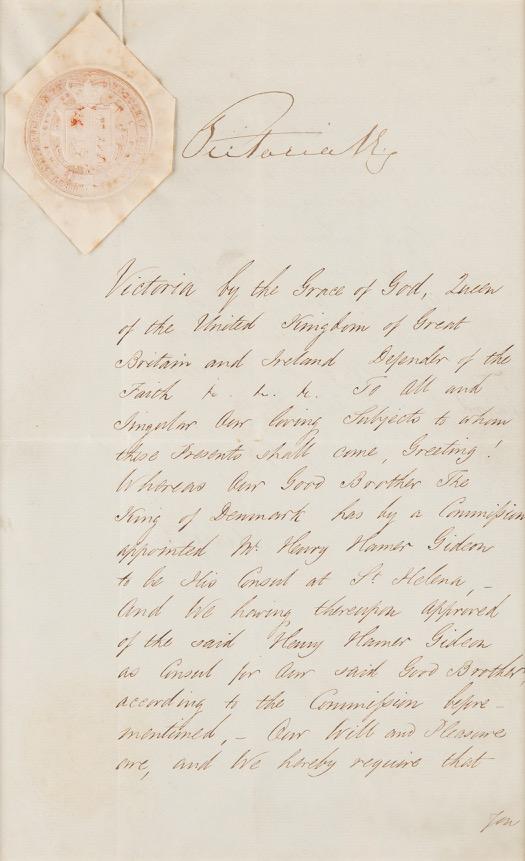 Victoria R
Victoria by the Grace of God, Queen
of the United Kingdom of Great
Britain and Ireland Defender of the
Faith &. &. &. To All and
Singular Our loving Subjects to whom
these Presents shall come, Greeting!
Whereas Our Good Brother The
King of Denmark has by a Commission
appointed Mr. Henry Hamer Gideon
to be His Consul at St. Helena, –
And We having thereupon approved
of the said Henry Hamer Gideon
as Consul for Our said Good Brother,
according to the Commission before-
mentioned, – Our Will and Pleasure
are, and We hereby require that
you